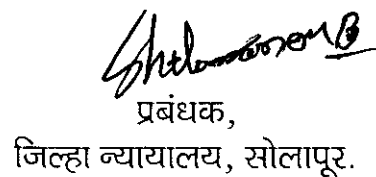 प्रबंधक,
जिल्हा न्यायालय, सोलापूर.